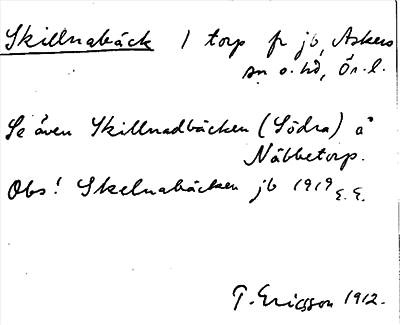 Skillnabäck 1 torp fr jb, Askers
sn o. hd, Ör. l.
Se även Skillnadbäcken (Södra) å
Näbbetorp.
Obs! Skelnabäcken jb 1919 E. E.
T. Ericsson 1912.